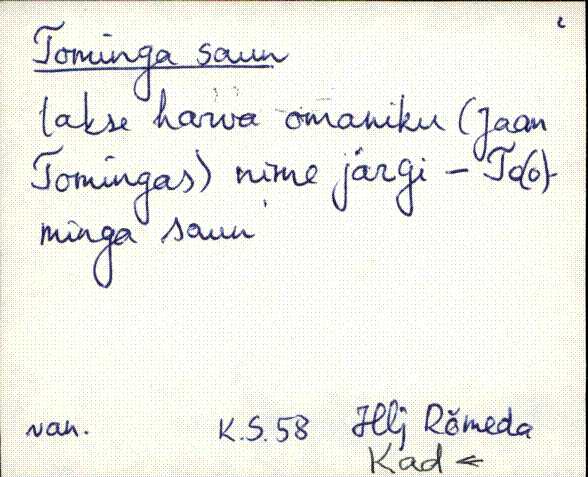 Tominga saun
takse harva omaniku (Jaan
Tomingas) nime järgi – To(o)-
minga saun
van. K.S.58 Hlj Rõmeda
Kad ←